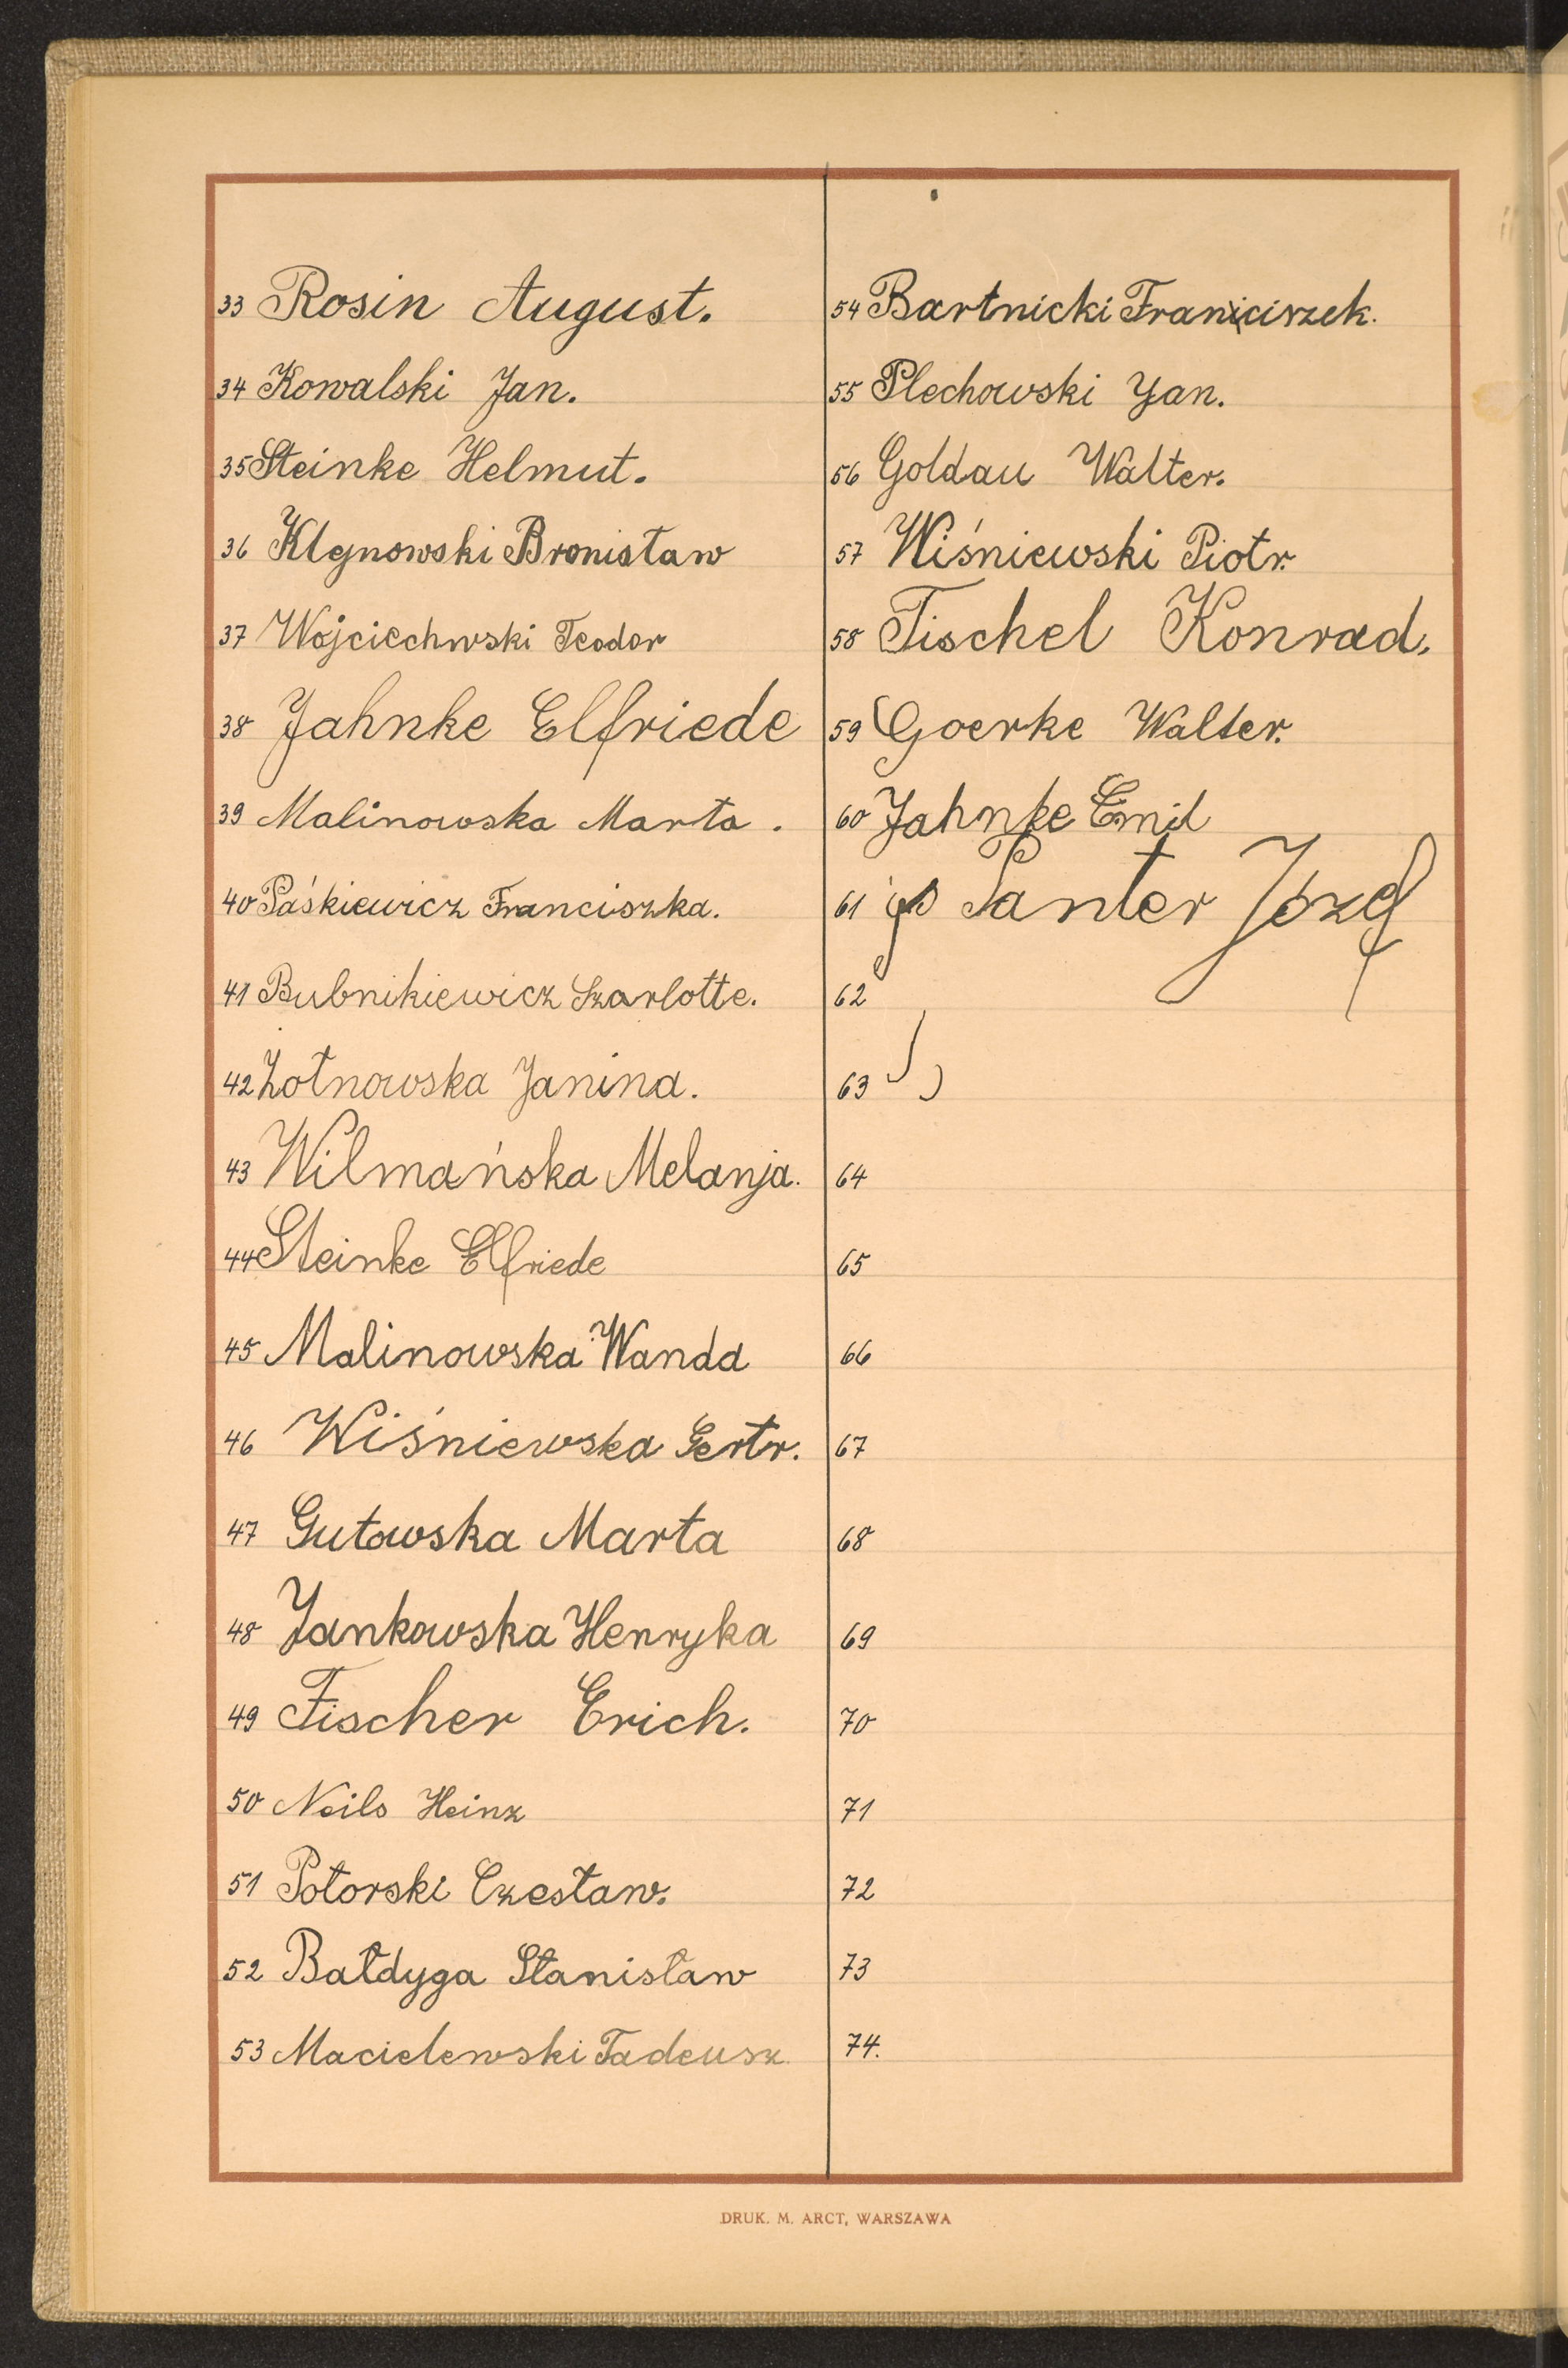 33 Rosin August.
34 Kowalski Jan.
35 Steinke Helmut.
36 Klynowski Bronisław
37 Wojciechwski Teodor
38 Jahnke Elfriede
39 Malinowska Marta.
40 Paśkiewicz Franciszka.
41 Bubnikiewicz Szarlotte.
42 Żołnowska Janina.
43 Wilmańska Melanja.
44 Steinke Elfriede
45 Malinowska Wanda
46 Wiśniewska Gertr.
47 Gutowska Marta
48 Jankowska Henryka
49 Fischer Erich.
50 Neils Heinz
51 Połorski Czesław.
52 Bałdyga Stanisław
53 Macielewski Tadeusz
54 Bartnicki Franciszek.
55 Plechowski Jan.
56 Goldau Walter.
57 Wiśniewski Piotr.
58 Tischel Konrad.
59 Goerke Walter.
60 Jahnke Emil
61 Panter Józef
62
63
64
65
66
67
68
69
70
71
72
73
74.
DRUK. M. ARCT, WARSZAWA